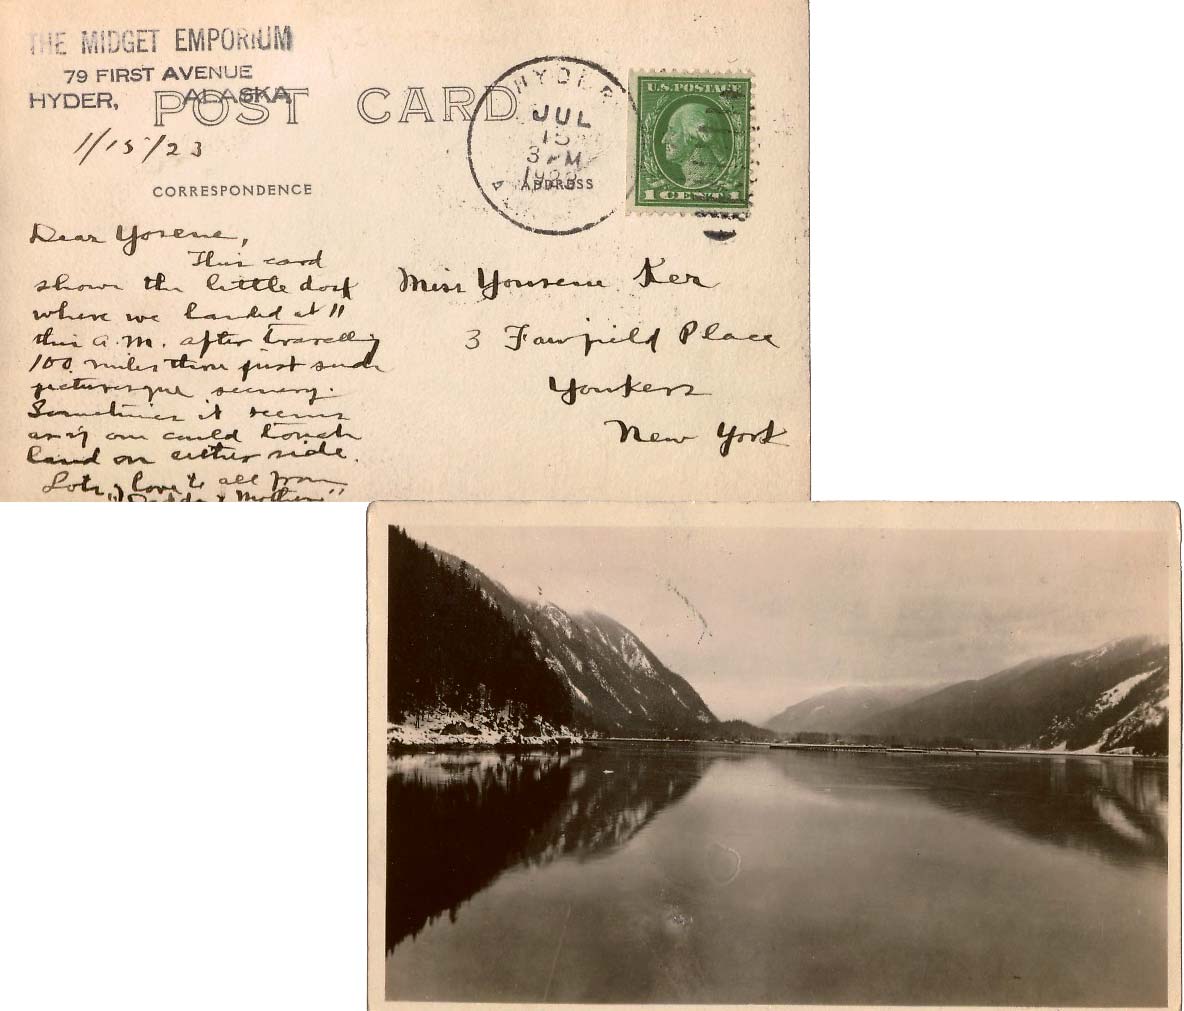 THE MIDGET EMPORIUM
79 FIRST AVENUE
HYDER, ALASKA
POST CARD
1/15/23
CORRESPONDENCE
HYDER
JUL
15
3 PM
192
ADDRESS
U.S. POSTAGE
1 CENT 1
Dear Yosene,
This card
shows the little dock
where we landed at 11
this A.M. after travelling
100 miles thru just such
picturesque scenery.
Sometimes it seems
as if one could touch
land on either side.
Lots of love to all from
"Daddy & Mother"
Miss Younsene Ker
3 Fairfield Place
Yonkers
New York